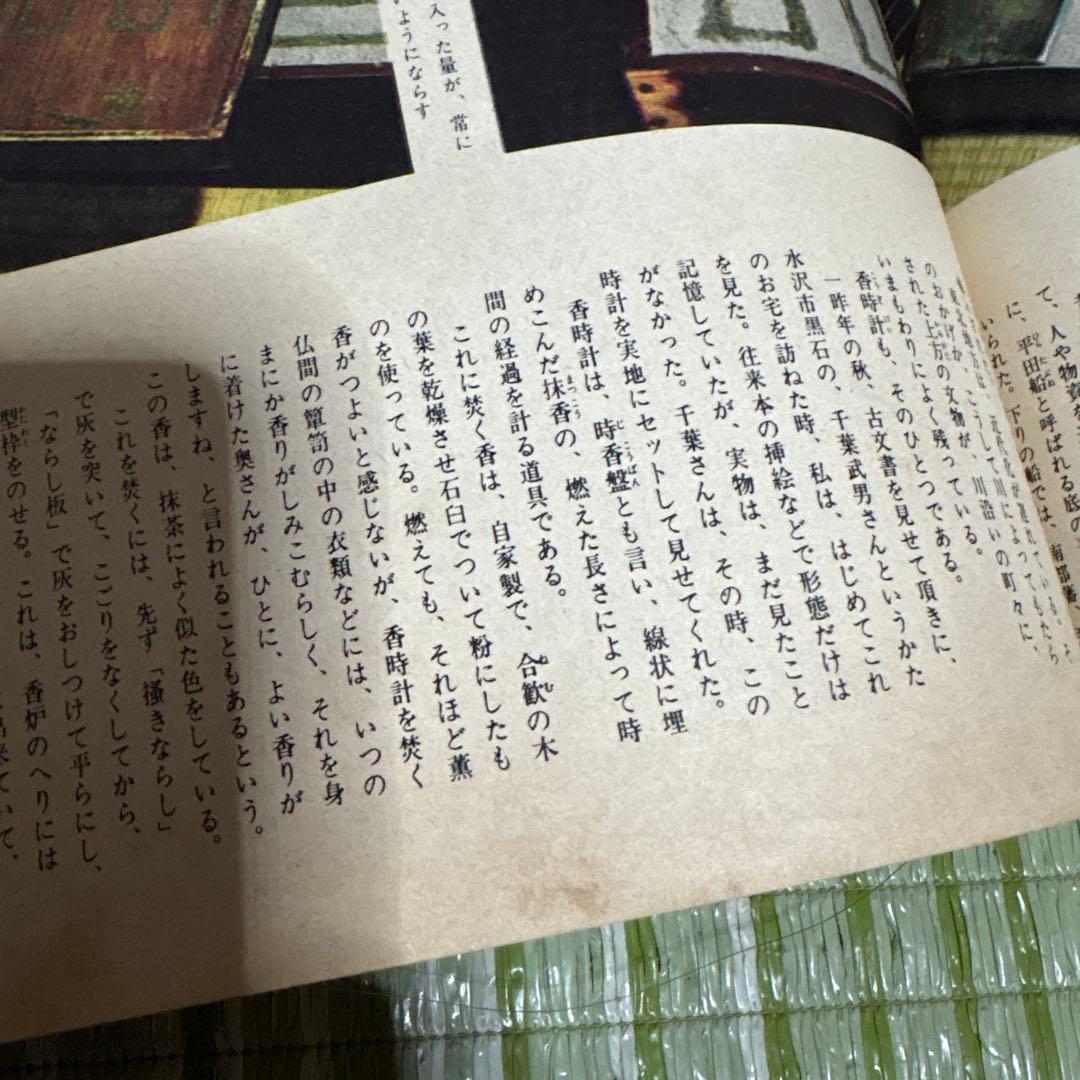 て、人や物資
に、平田船と呼ばれる底の
いられた。下りの船では、南部藩、
地方は、こうして川沿いの町々に、
のおかげか、近代化が遅れているから
された上方の文物が、川によってもたら
いまもわりによく残っている。
香時計も、そのひとつである。
一昨年の秋、古文書を見せて頂きに、
水沢市黒石の、千葉武男さんというかた
のお宅を訪ねた時、私は、はじめてこれ
を見た。往来本の挿絵などで形態だけは
記憶していたが、実物は、まだ見たこと
がなかった。千葉さんは、その時、この
時計を実地にセットして見せてくれた。
香時計は、時香盤とも言い、線状に埋
めこんだ抹香の、燃えた長さによって時
間の経過を計る道具である。
これに焚く香は、自家製で、合歓の木
の葉を乾燥させ石臼でついて粉にしたも
のを使っている。燃えても、それほど薫
香がつよいと感じないが、香時計を焚く
仏間の簞笥の中の衣類などには、いつの
まにか香りがしみこむらしく、それを身
に着けた奥さんが、ひとに、よい香りが
しますね、と言われることもあるという。
この香は、抹茶によく似た色をしている。
これを焚くには、先ず「搔きならし」
で灰を突いて、ごごりをなくしてから、
「ならし板」で灰をおしつけて平らにし、
型枠をのせる。これは、香炉のへりには
出来ていて、
入った量が、常に
いようにならす